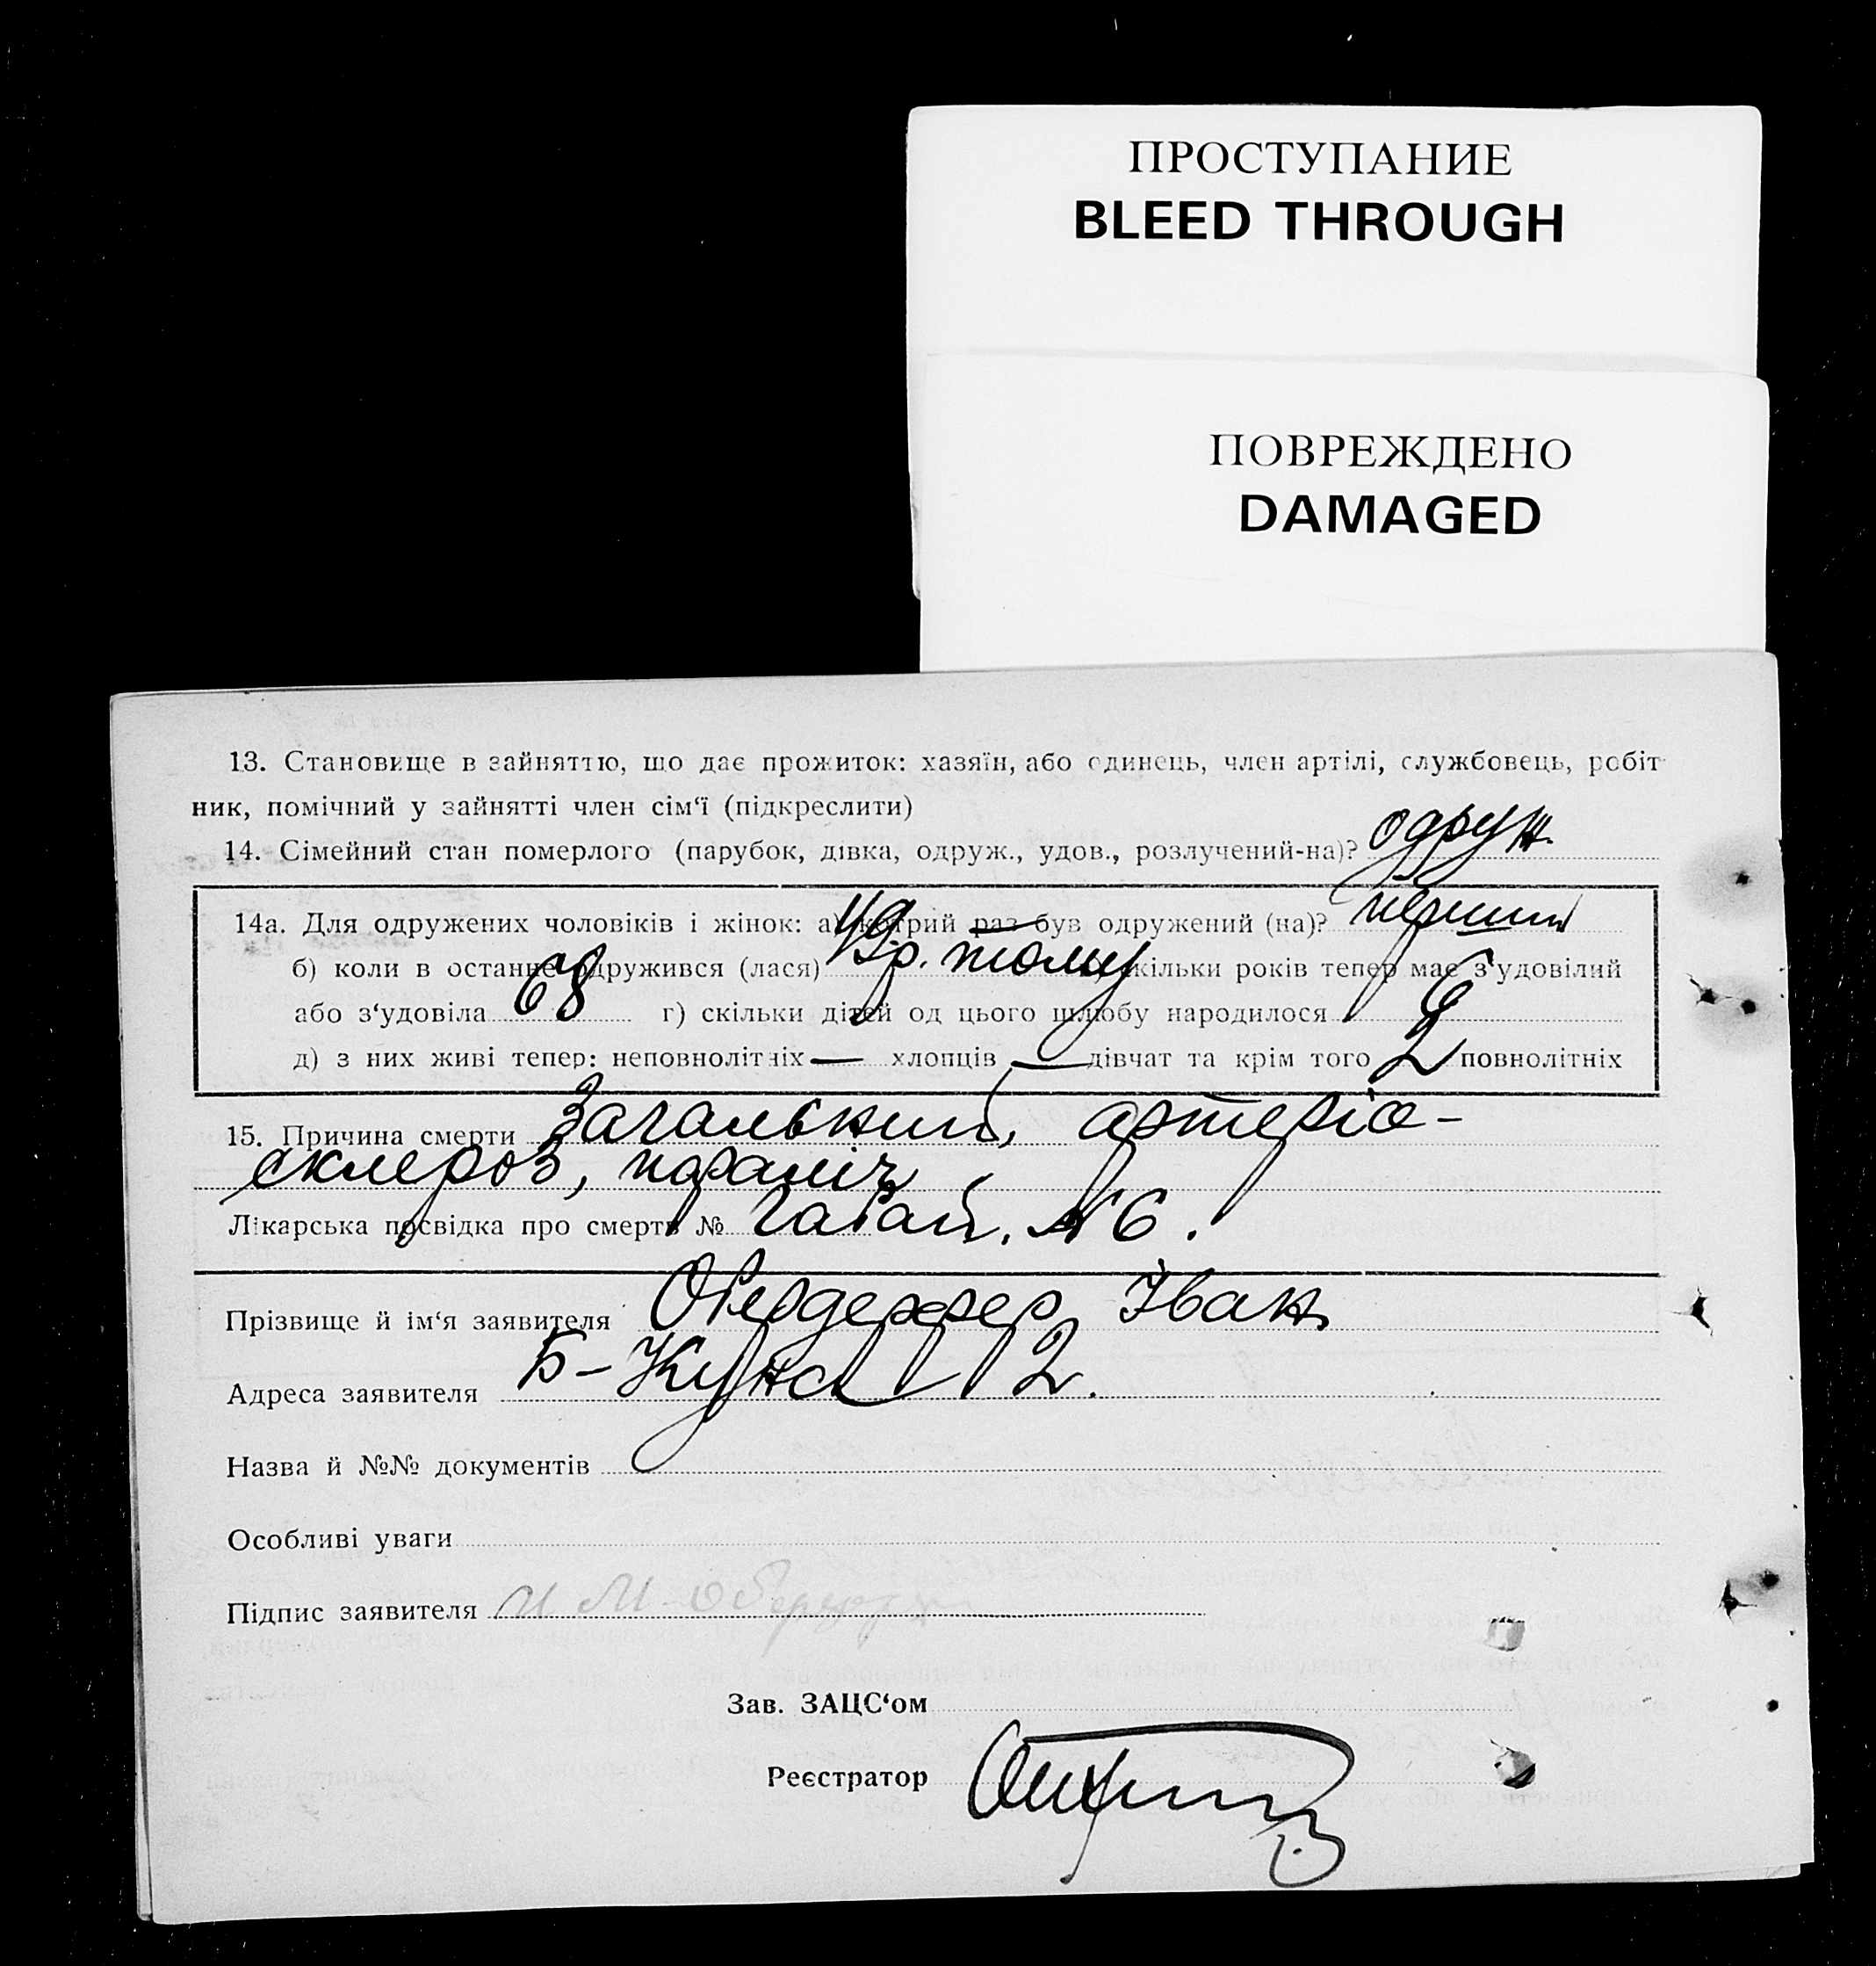 ПРОСТУПАНИЕ
BLEED THROUGH
ПОВРЕЖДЕНО
DAMAGED
13. Становище в зайняттю, що дає прожиток: хазяїн, або одинець, член артілі, службовець, робіт-
ник, помічний у зайнятті член сім‘ї (підкреслити)
14. Сімейний стан померлого (парубок, дівка, одруж., удов., розлучений-на)? одруж.
14а. Для одружених чоловіків і жінок: а) котрий раз був одружений (на)? перший
б) коли в останнє одружився (лася) 49 р. тому скільки років тепер має з‘удовілий
або з‘удовіла 68 г) скільки дітей од цього шлюбу народилося 6
д) з них живі тепер: неповнолітніх — хлопців — дівчат та крім того 2 повнолітніх
15. Причина смерти Загальний, артеріо-
склероз, параліч
Лікарська посвідка про смерть № №6.
Прізвище й ім‘я заявителя Обердерфер Іван
Адреса заявителя Б-Куна 12.
Назва й №№ документів
Особливі уваги
Підпис заявителя И М
Зав. ЗАЦС‘ом
Реєстратор